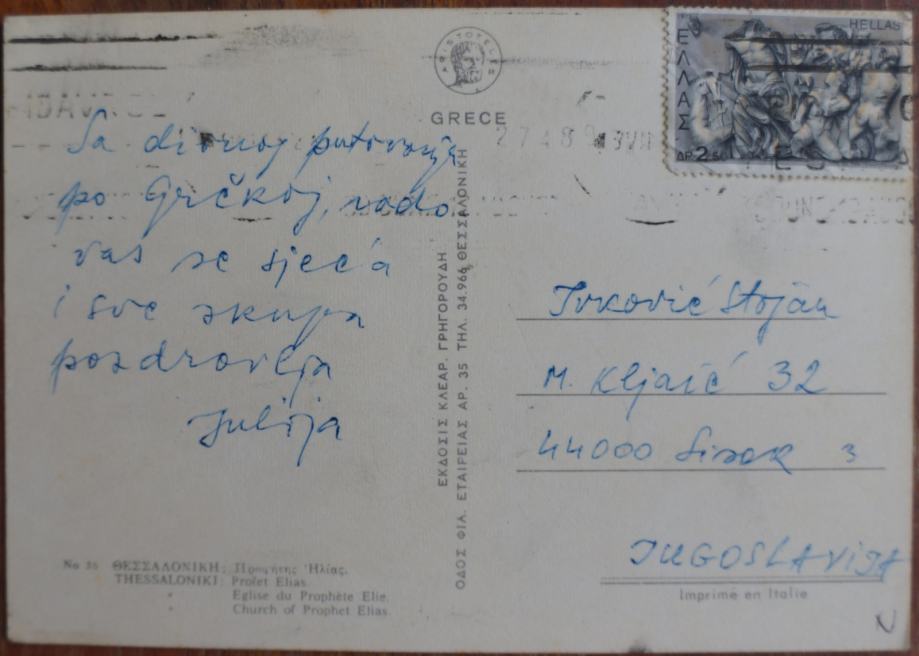 ARISTOTELES
GRECE
HELLAS
ΕΛΛΑΣ
ΔΡ 2.50
Sa divnog putovanja
po Grčkoj, rado
vas se sjeća
i sve skupa
pozdravlja
Julija
ΕΚΔΟΣΙΣ ΚΛΕΑΡ. ΓΡΗΓΟΡΟΥΔΗ
ΟΔΟΣ ΦΙΛ. ΕΤΑΙΡΕΙΑΣ ΑΡ. 35 ΤΗΛ. 34.966 ΘΕΣΣΑΛΟΝΙΚΗ
Ivković Stojan
M. Kljaić 32
44000 Sisak 3
JUGOSLAVIJA
Imprimé en Italie
No 36 ΘΕΣΣΑΛΟΝΙΚΗ: Προφήτης Ἠλίας.
THESSALONIKI: Profet Elias.
Eglise du Prophète Elie.
Church of Prophet Elias.
N